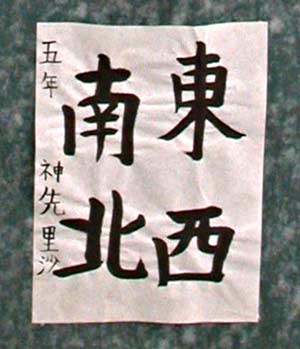 東西
南北
五年 神先里沙